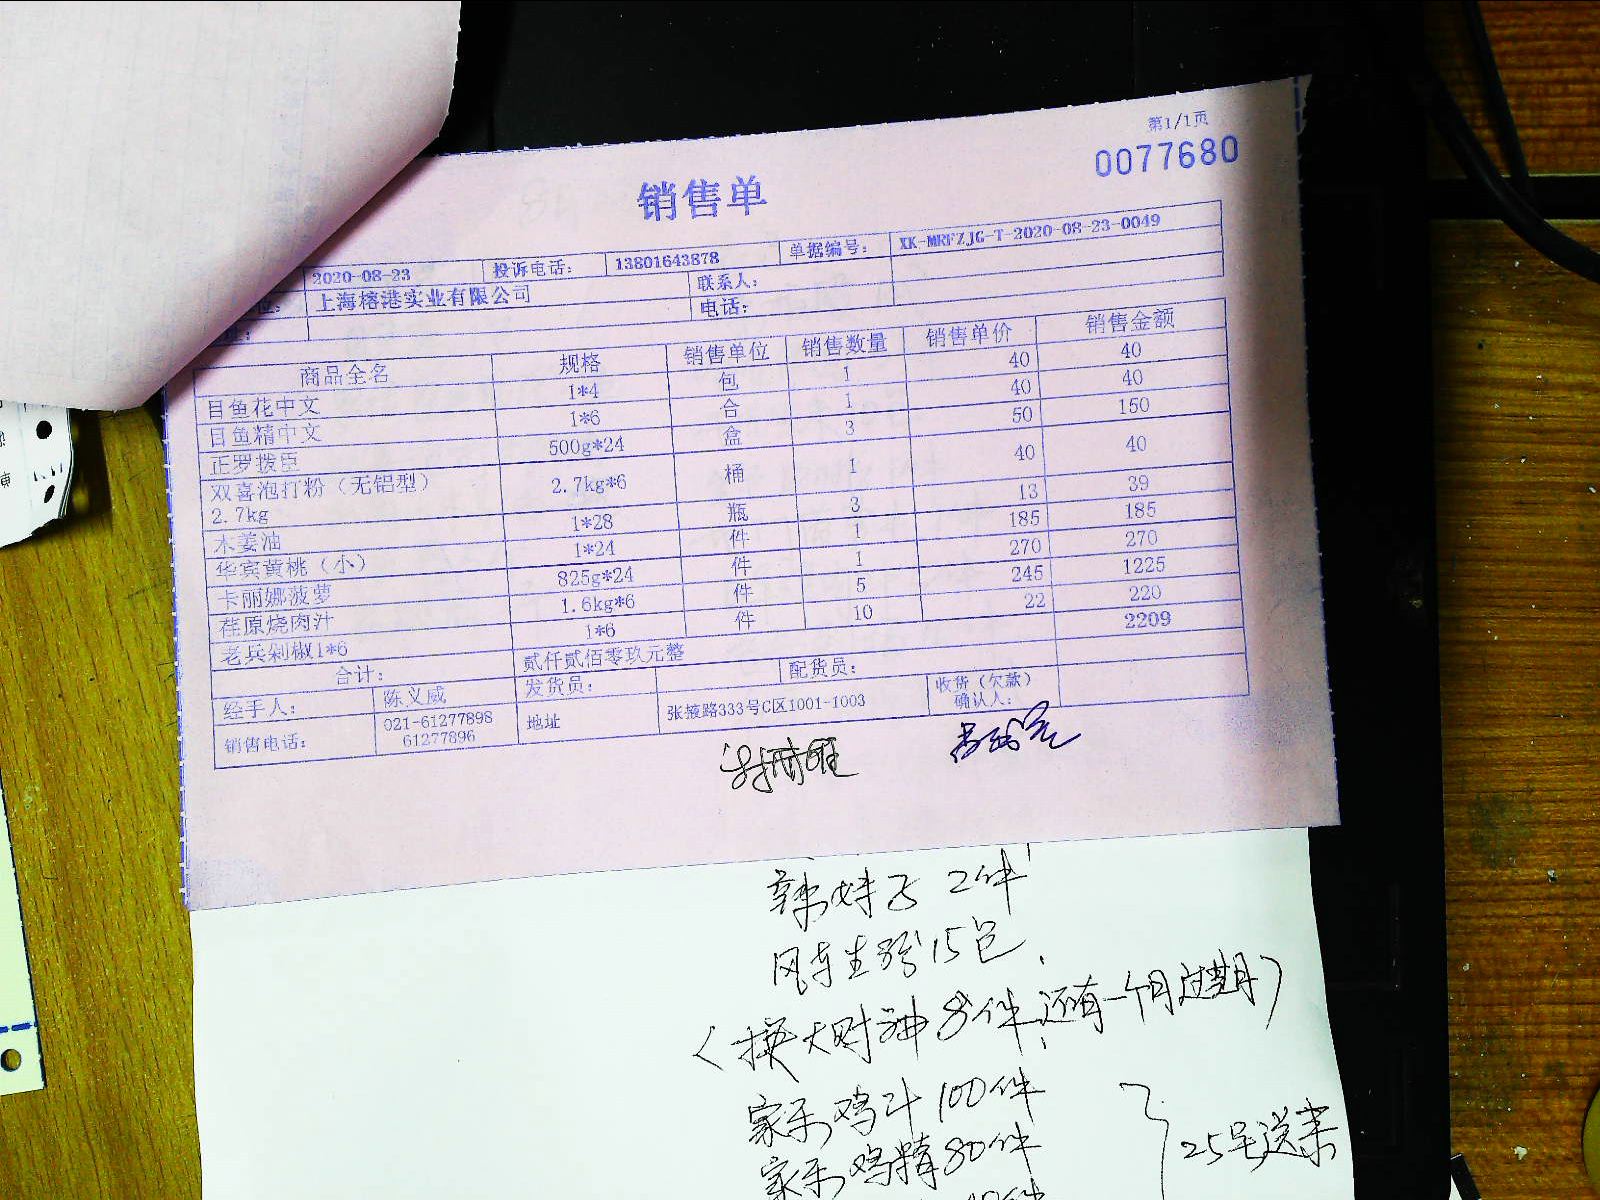 第1/1页
0077680
销售单
2020-08-23 投诉电话: 13801643878 单据编号: XK-MRFZJG-T-2020-08-23-0049
位: 上海榕港实业有限公司 联系人:
址: 电话:
商品全名 规格 销售单位 销售数量 销售单价 销售金额
目鱼花中文 1*4 包 1 40 40
目鱼精中文 1*6 合 1 40 40
正罗拨臣 500g*24 盒 3 50 150
双喜泡打粉（无铝型）2.7kg 2.7kg*6 桶 1 40 40
木姜油 1*28 瓶 3 13 39
华宾黄桃（小） 1*24 件 1 185 185
卡丽娜菠萝 825g*24 件 1 270 270
荏原烧肉汁 1.6kg*6 件 5 245 1225
老兵剁椒1*6 1*6 件 10 22 220
合计: 贰仟贰佰零玖元整 2209
经手人: 陈义威 发货员: 配货员: 收货（欠款）确认人:
销售电话: 021-61277898 61277896 地址 张掖路333号C区1001-1003
辣妹子 2件
风车生粉15包
(换大财神8件,还有一个月过期)
家乐鸡汁100件
家乐鸡精80件
25号送来